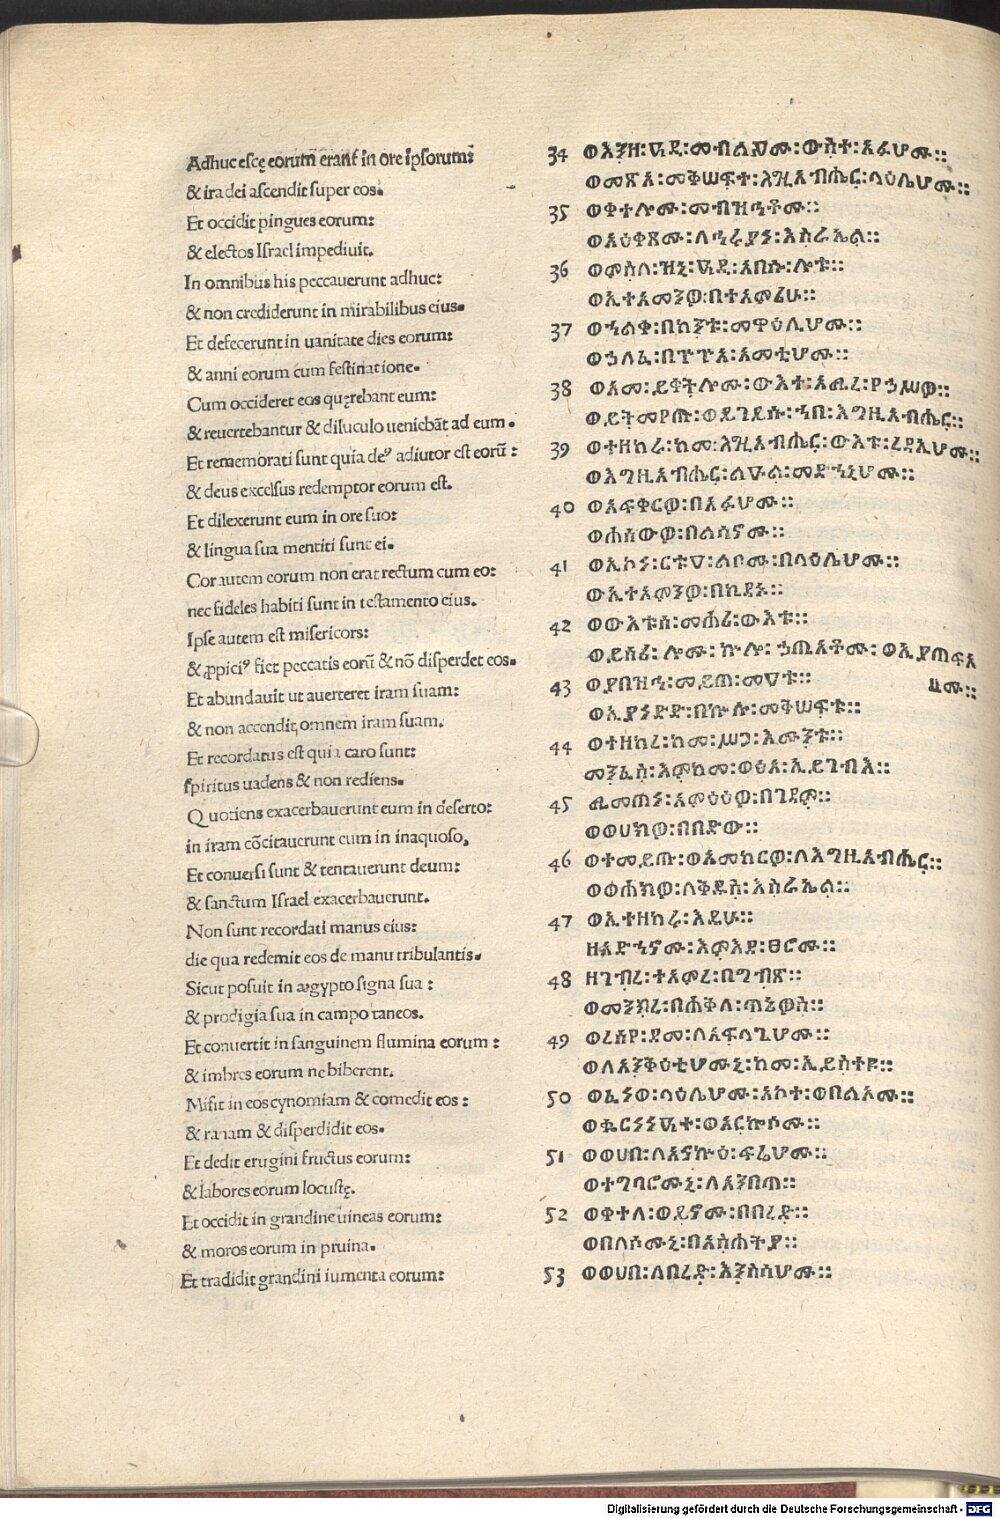 Adhuc escę eorum̄ erant in ore ipsorum:
& ira dei ascendit super eos.
Et occidit pingues eorum:
& electos Israel impediuit.
In omnibus his peccauerunt adhuc:
& non crediderunt in mirabilibus eius.
Et defecerunt in uanitate dies eorum:
& anni eorum cum festinatione.
Cum occideret eos quęrebant eum:
& reuertebantur & diluculo uenicbāt ad eum.
Et rememorati sunt quia deꝰ adiutor est eorū:
& deus excelsus redemptor eorum est.
Et dilexerunt eum in ore suo:
& lingua sua mentiti sunt ei.
Cor autem eorum non erat rectum cum eo:
nec fideles habiti sunt in testamento eius.
Ipse autem est misericors:
& ꝓpiciꝰ fiet peccatis eorū & nō disperdet eos.
Et abundauit ut auerteret iram suam:
& non accendit omnem iram suam.
Et recordatus est quia caro sunt:
spiritus uadens & non rediens.
Quotiens exacerbauerunt eum in deserto:
in iram cōcitauerunt eum in inaquoso,
Et conuersi sunt & tentauerunt deum:
& sanctum Israel exacerbauerunt.
Non sunt recordati manus eius:
die qua redemit eos de manu tribulantis.
Sicut posuit in ægypto signa sua:
& prodigia sua in campo taneos.
Et conuertit in sanguinem flumina eorum:
& imbres eorum ne biberent.
Misit in eos cynomiam & comedit eos:
& ranam & disperdidit eos.
Et dedit erugini fructus eorum:
& labores eorum locustę.
Et occidit in grandine uineas eorum:
& moros eorum in pruina.
Et tradidit grandini iumenta eorum:
34 ወእንዘ፡ዓዲ፡መብልዖሙ፡ውስተ፡አፉሆሙ።
ወመጽአ፡መቅሠፍተ፡እግዚአብሔር፡ላዕሌሆሙ።
35 ወቀተሎሙ፡መብዝኅቶሙ።
ወአዕቀጾሙ፡ለኅሩያነ፡እስራኤል።
36 ወምስለ፡ዝኒ፡ዓዲ፡አበሱ፡ሎቱ።
ወኢተአመንዎ፡በተአምሪሁ።
37 ወኀልቀ፡በከንቱ፡መዋዕሊሆሙ።
ወኃለፈ፡በጕጕአ፡አመቲሆሙ።
38 ወአመ፡ይቀትሎሙ፡ውእተ፡አሚረ፡የኃሥዎ።
ወይትመየጡ፡ወይገይሱ፡ኀበ፡እግዚአብሔር።
39 ወተዘከሩ፡ከመ፡እግዚአብሔር፡ውእቱ፡ረዳኢሆሙ።
ወእግዚአብሔር፡ልዑል፡መድኀኒሆሙ።
40 ወአፍቀርዎ፡በአፉሆሙ።
ወሐሰውዎ፡በልሳኖሙ።
41 ወኢኮነ፡ርቱዐ፡ልቦሙ፡በላዕሌሆሙ።
ወኢተአምንዎ፡በኪዳኑ።
42 ወውእቱሰ፡መሐሪ፡ውእቱ።
ወይሰሪ፡ሎሙ፡ኵሎ፡ኃጢአቶሙ፡ወኢያጠፍአ
43 ወያበዝኅ፡መይጠ፡መዐቱ።
ወኢያነድድ፡በኵሉ፡መቅሠፍቱ።
44 ወተዘከረ፡ከመ፡ሥጋ፡እሙንቱ።
መንፈስ፡እምከመ፡ወፅአ፡ኢይገብእ።
45 ሚመጠነ፡አምዕዕዎ፡በገዳም።
ወወሀክዎ፡በበድው።
46 ወተመይጡ፡ወአመከርዎ፡ለእግዚአብሔር።
ወወሐክዎ፡ለቅዱስ፡እስራኤል።
47 ወኢተዘከሩ፡እዴሁ።
ዘአድኀኖሙ፡እምእደ፡ፀሮሙ።
48 ዘገብረ፡ተአምረ፡በግብጽ።
ወመንክረ፡በሐቅለ፡ጣኔዎስ።
49 ወረሰየ፡ደመ፡ለአፍላጊሆሙ።
ወለአንቅዕቲሆሙኒ፡ከመ፡ኢይስተዩ።
50 ወፈነወ፡ላዕሌሆሙ፡አኮተ፡ወበልዖሙ።
ወቈርነነዓተ፡ወአርኰሶሙ።
51 ወወሀበ፡ለአናኵዕ፡ፍሬሆሙ።
ወተግባሮሙኒ፡ለአንበጣ።
52 ወቀተለ፡ወይኖሙ፡በበረድ።
ወበለሶሙኒ፡በአስሐትያ።
53 ወወሀበ፡ለበረድ፡እንስሳሆሙ።
Digitalisierung gefördert durch die Deutsche Forschungsgemeinschaft - DFG